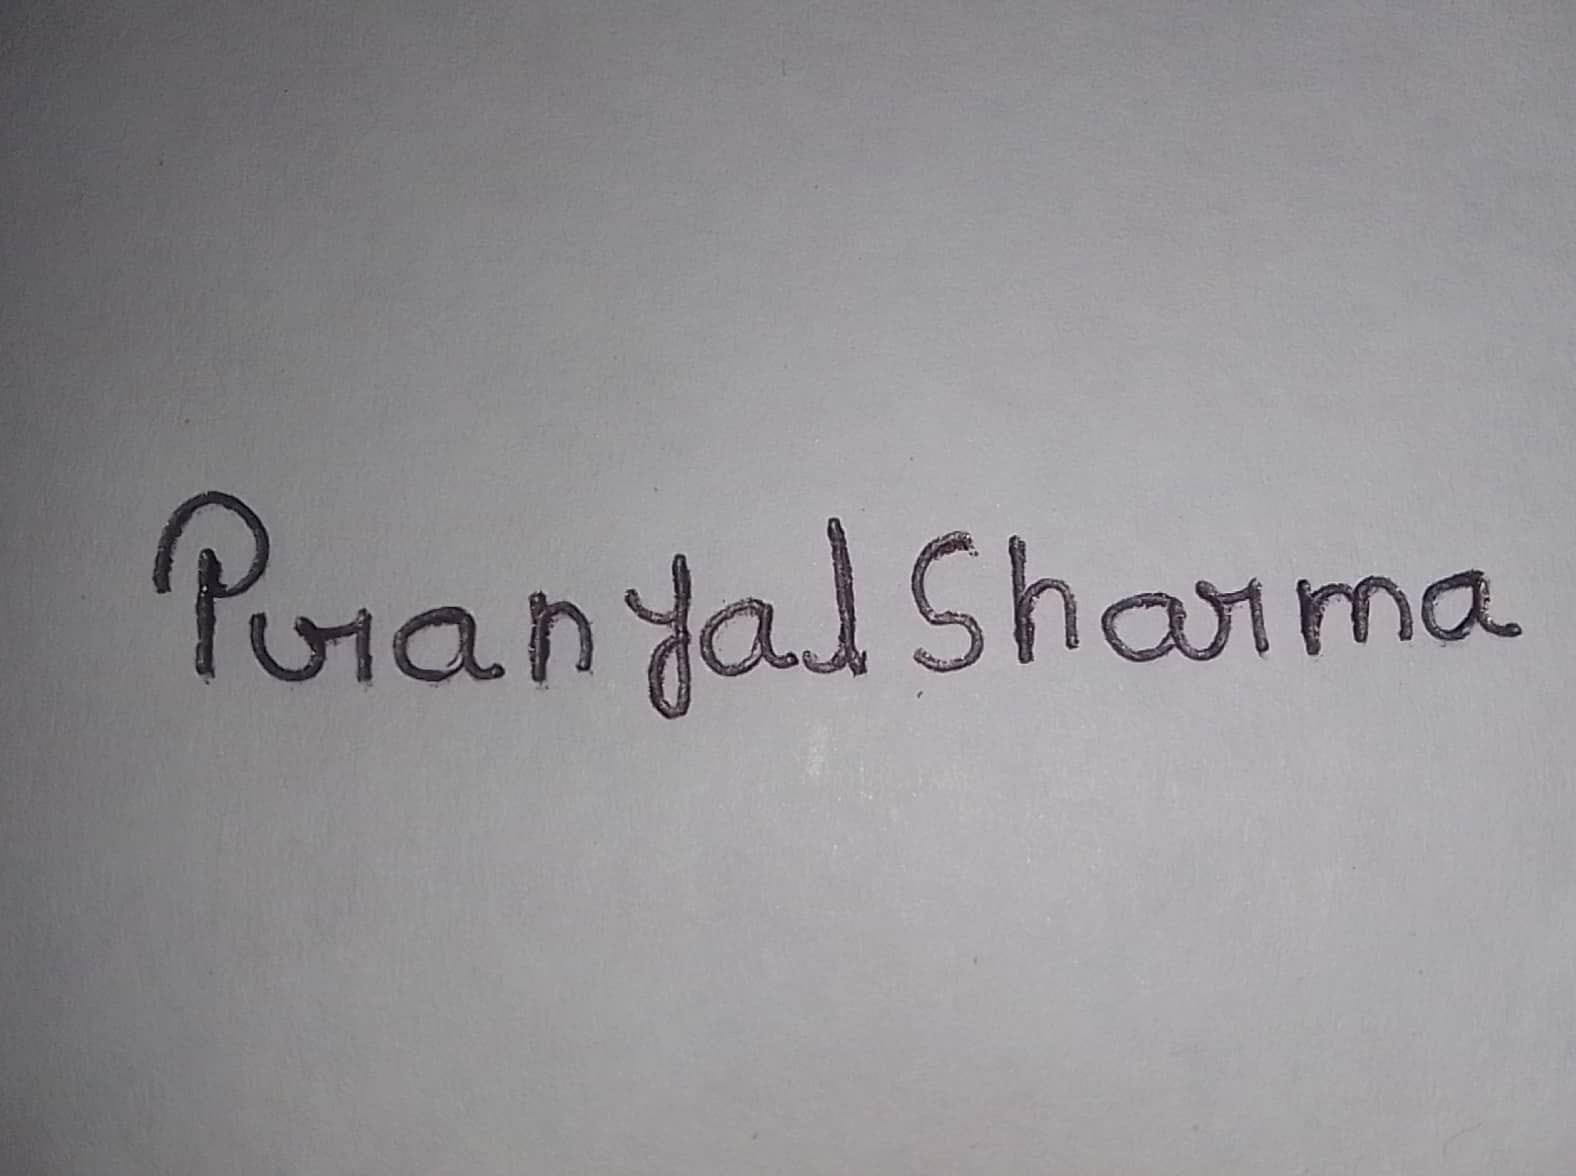 Pranyal Sharma